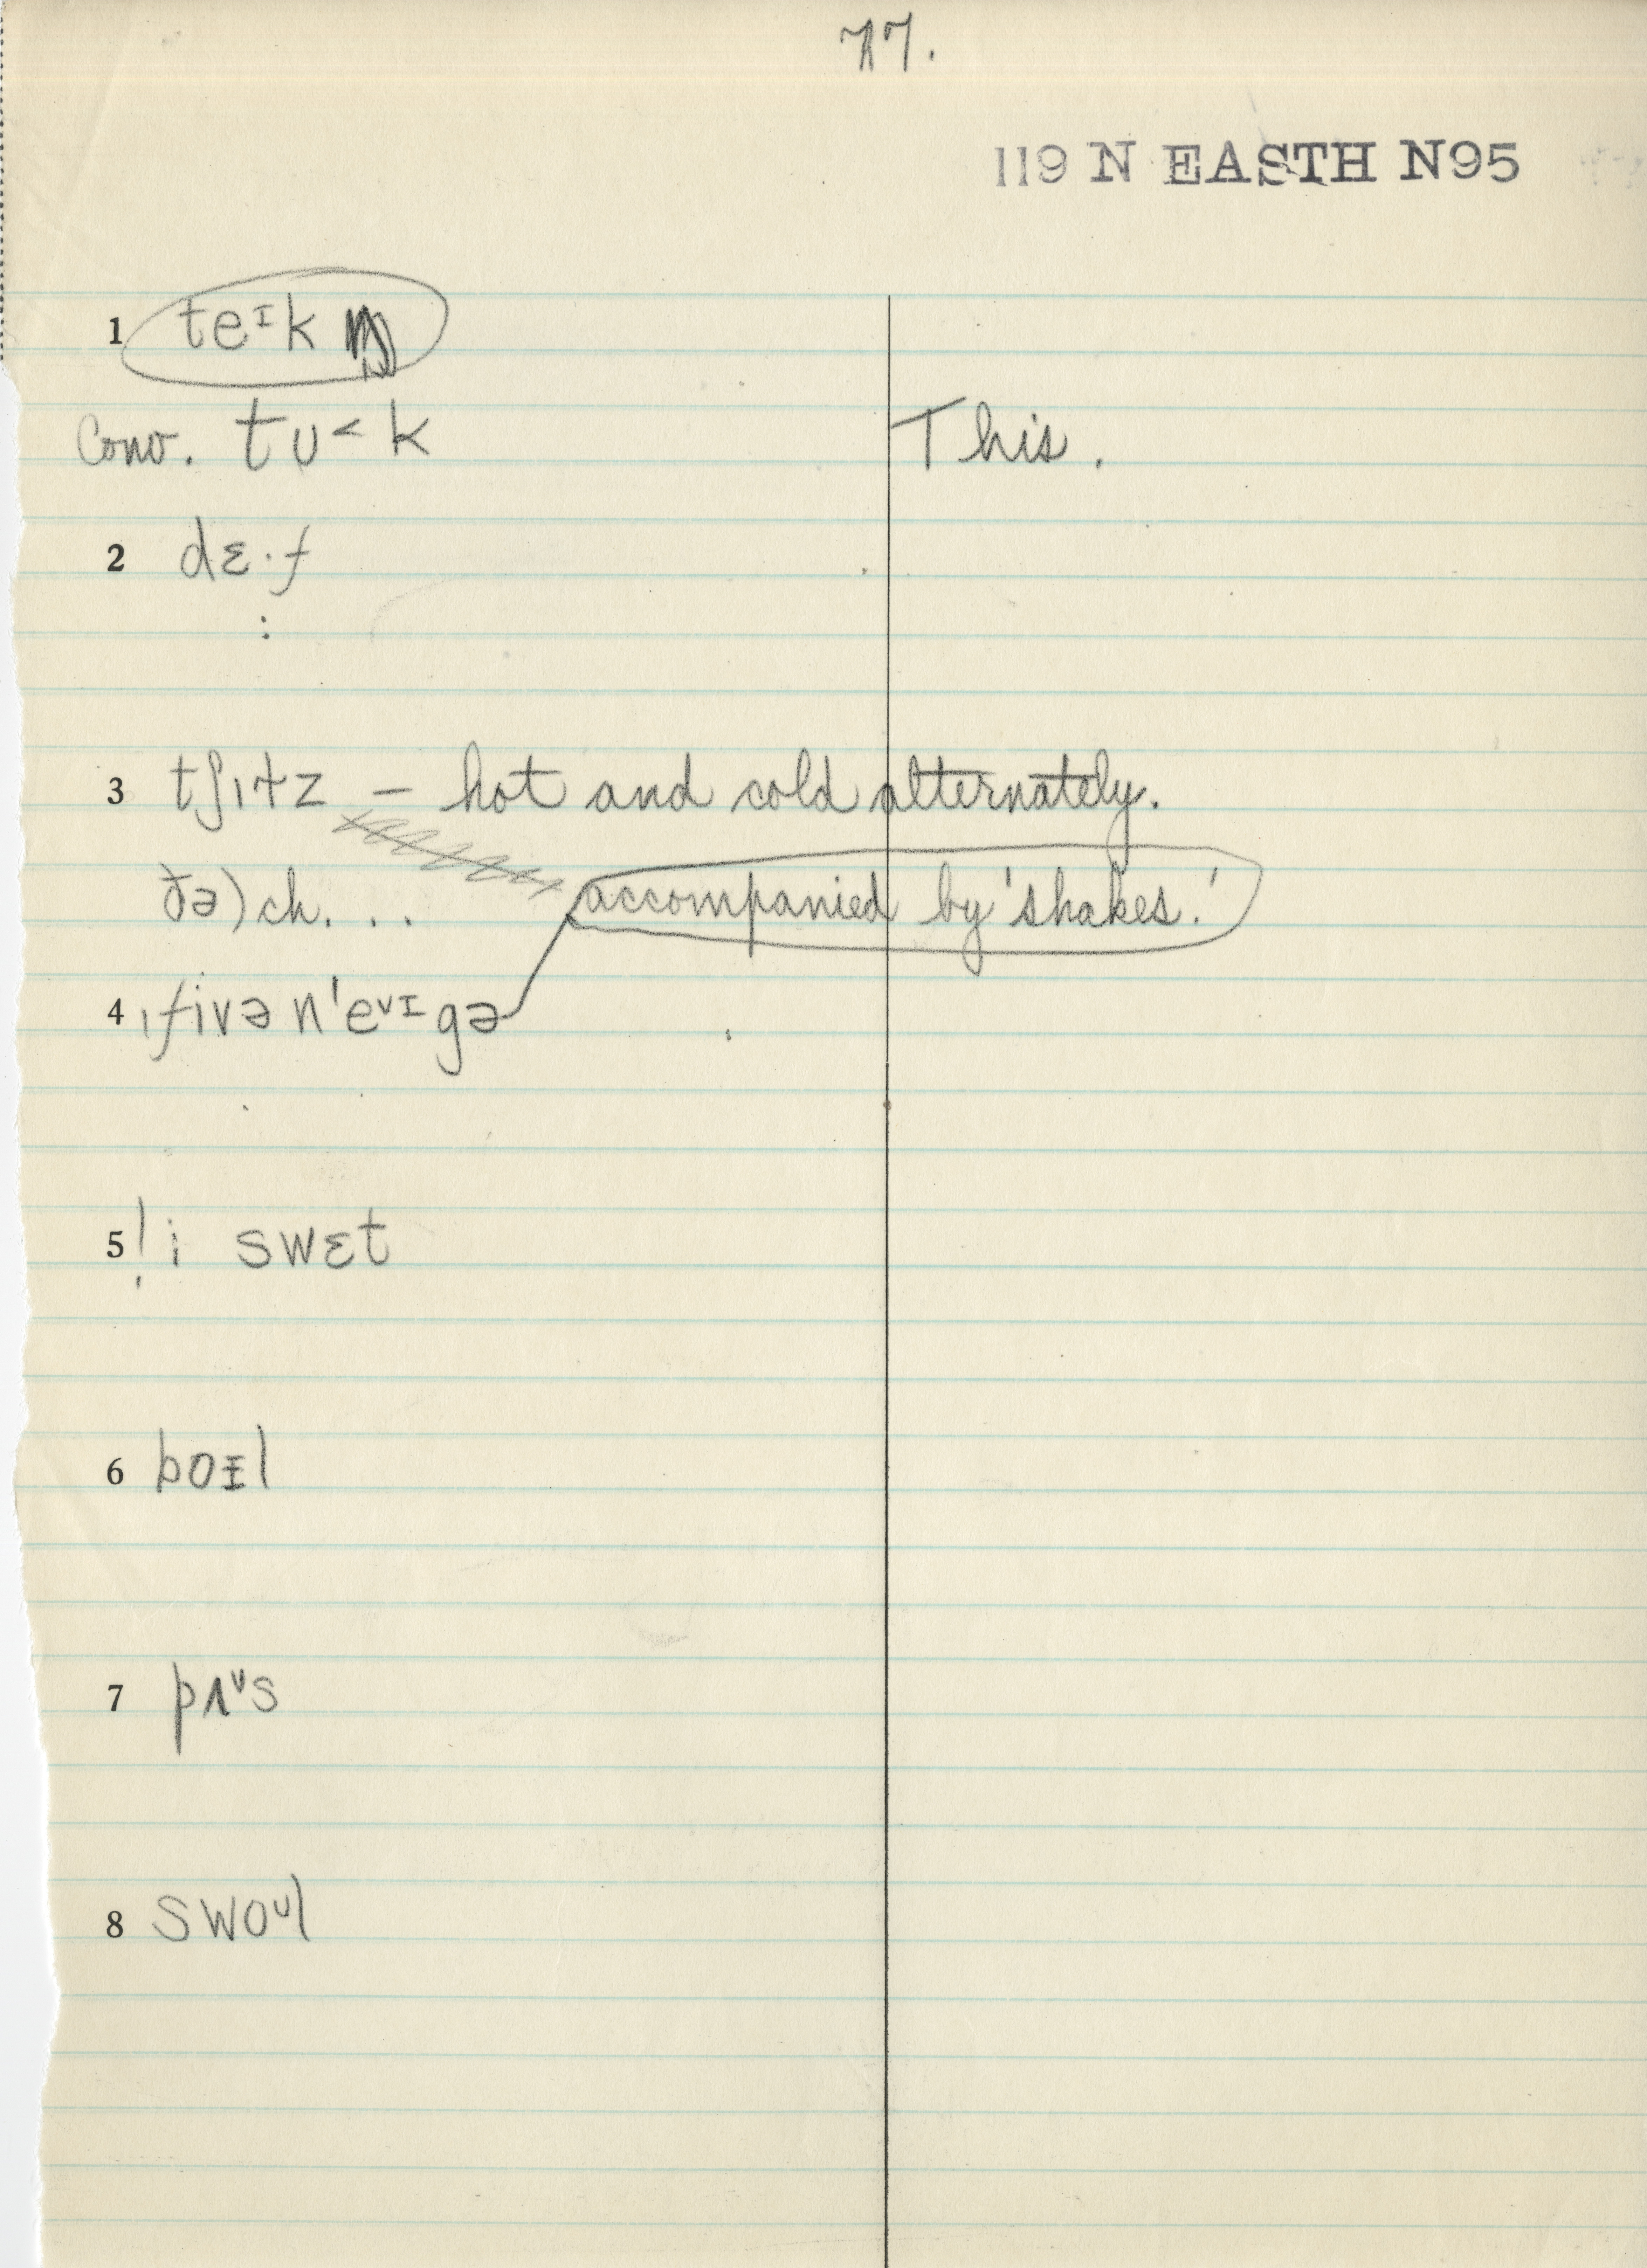 77.
119 N EASTH N95
1 teᶦk
Conv. tʊ˂k This.
2 dɛ·f
:
3 tʃɪtz – hot and cold alternately.
ðə) ch. . . accompanied by 'shakes.'
4 ˌfivə n'eᵛᶦgə
5 ! i swɛt
6 boɪl
7 pʌᵛs
8 swoᶸl